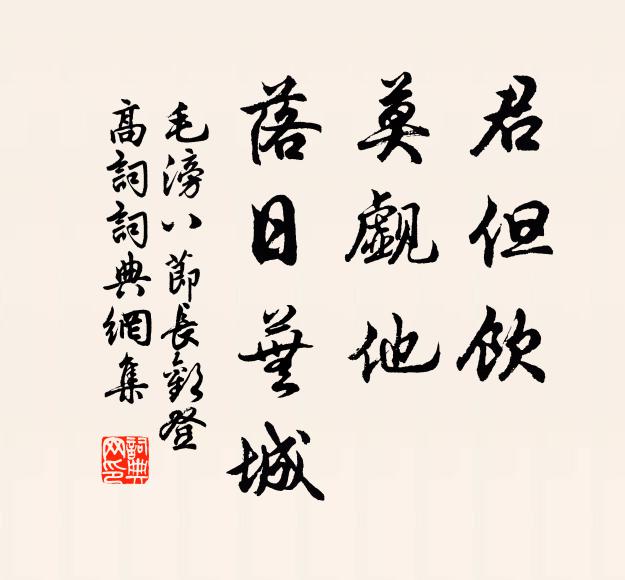 君但飲
莫覷他
落日蕪城
毛滂八節長歡登
高詞詞典網集
詞典
网印